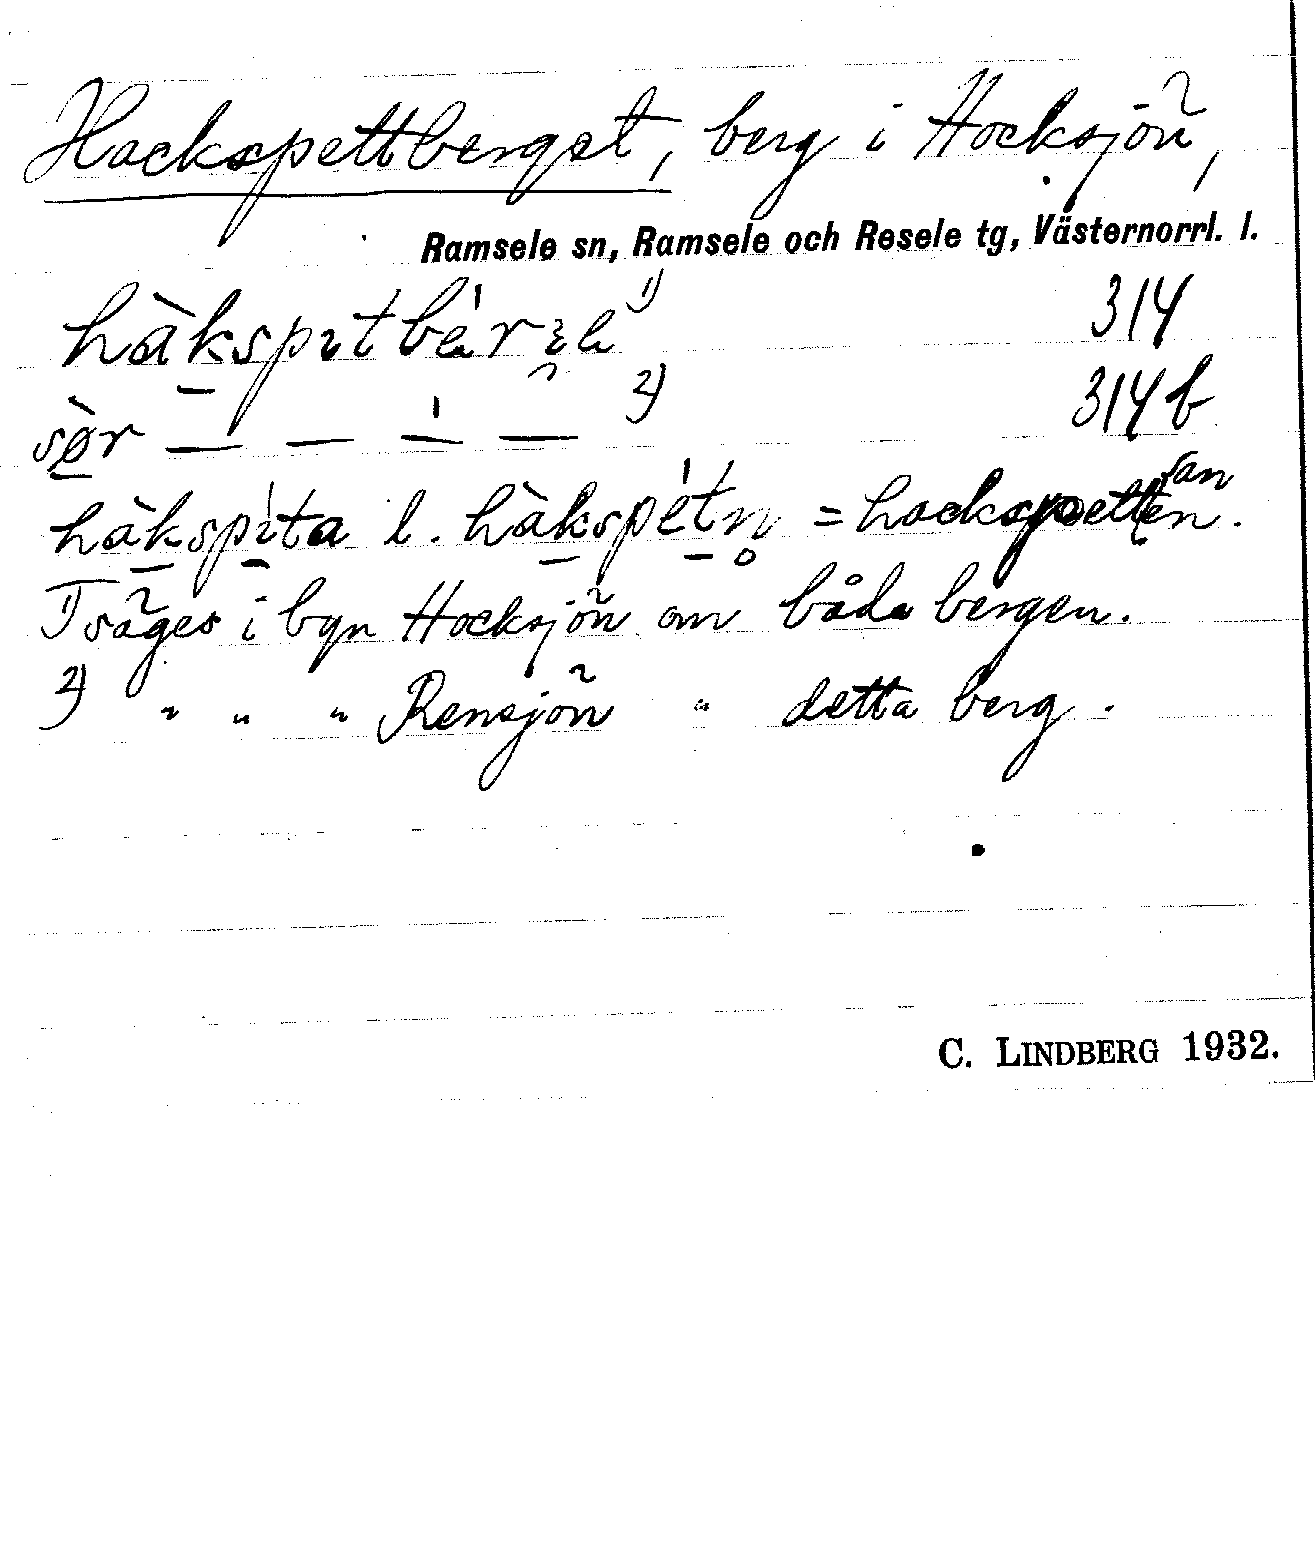 Hackspettberget, berg i Hocksjön,
Ramsele sn, Ramsele och Resele tg, Västernorrl. l.
314
sør — — — — 2) 314 b
l. = hackspettan.
1) säges i byn Hocksjön om båda bergen.
2) " " " Rensjön " detta berg.
C. LINDBERG 1932.